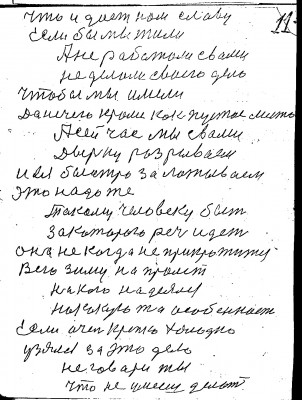 11
что и дает нам славу
Если бы мы жили
А не работали с вами
не делали своего дело
чтобы мы имели
Да нечего кроме как пустое место
А сейчас мы с вами
Дырку разрываем
и ей быстро залатываем
это надо же
такому человеку быть
за которого реч идет
она не когда не прикратижу
Всю зиму на пролет
на кого надеялу
на которо та особенност
Если очен крепко холодно
узялся за это дело
не говари ты
что не умееш делат